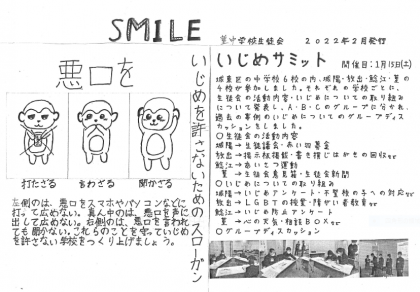 SMILE
菫中学校生徒会 2022年2月発行
悪口を
打たざる 言わざる 聞かざる
左側のは、悪口をスマホやパソコンなどに
打って広めない。真ん中のは、悪口を声に
出して広めない。右側のは、悪口を言われ
ても聞かない。これらのことを守っていじめ
を許さない学校をつくり上げましょう。
いじめを許さないためのスローガン
いじめサミット 開催日:1月15日(土)
城東区の中学校6校の内、城陽・放出・鯰江・菫の
4校が参加しました。それぞれの学校ごとに、
生徒会の活動内容・いじめについての取り組み
について発表し、A・B・Cのグループに分かれ、
過去の事例のいじめについてのグループディス
カッションをしました。
○生徒会の活動内容
城陽→生徒議会・赤い羽募金
放出→掲示板掲載・書き損じはがきの回収etc
鯰江→あいさつ運動
菫→生徒会意見箱・生徒会新聞
○いじめについての取り組み
城陽→いじめアンケート・不登校の子への対応etc
放出→LGBTの授業・障がい者教育etc
鯰江→いじめ防止アンケート
菫→心の天気・相談BOXetc
○グループディスカッション